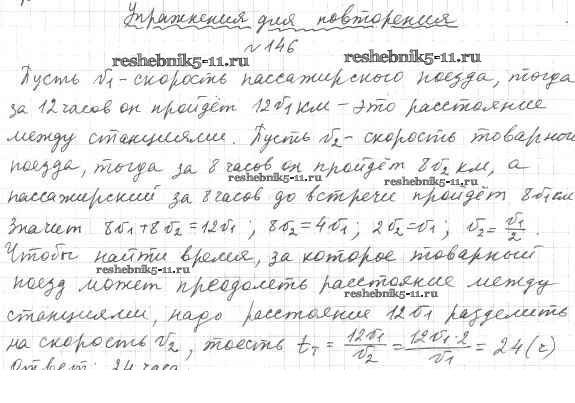 Упражнения для повторения
№146
reshebnik5-11.ru reshebnik5-11.ru
Пусть v1 - скорость пассажирского поезда, тогда
за 12 часов он пройдёт 12v1 км - это расстояние
между станциями. Пусть v2 - скорость товарного
поезда, тогда за 8 часов он пройдёт 8v2 км, а
reshebnik5-11.ru reshebnik5-11.ru
пассажирский за 8 часов до встречи пройдёт 8v1 км
Значит 8v1+8v2=12v1; 8v2=4v1; 2v2=v1; v2=v1/2.
Чтобы найти время, за которое товарный
reshebnik5-11.ru
поезд может преодолеть расстояние между
reshebnik5-11.ru
станциями, надо расстояние 12v1 разделить
на скорость v2, тоесть tт = 12v1/v2 = 12v1·2/v1 = 24 (ч)
Ответ: 24 часа